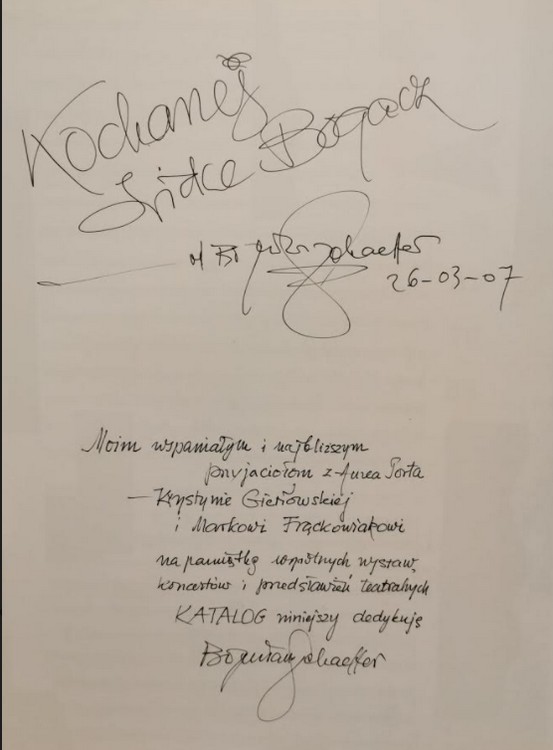 Kochanej
Lidce Bogacz
od Bogusława Schaeffer
26-03-07
Moim wspaniałym i najbliższym
przyjaciołom z Aurea Porta
— Krystynie Gierłowskiej
i Markowi Frąckowiakowi
na pamiątkę wspólnych wystaw,
koncertów i przedstawień teatralnych
KATALOG niniejszy dedykuję
Bogusław Schaeffer